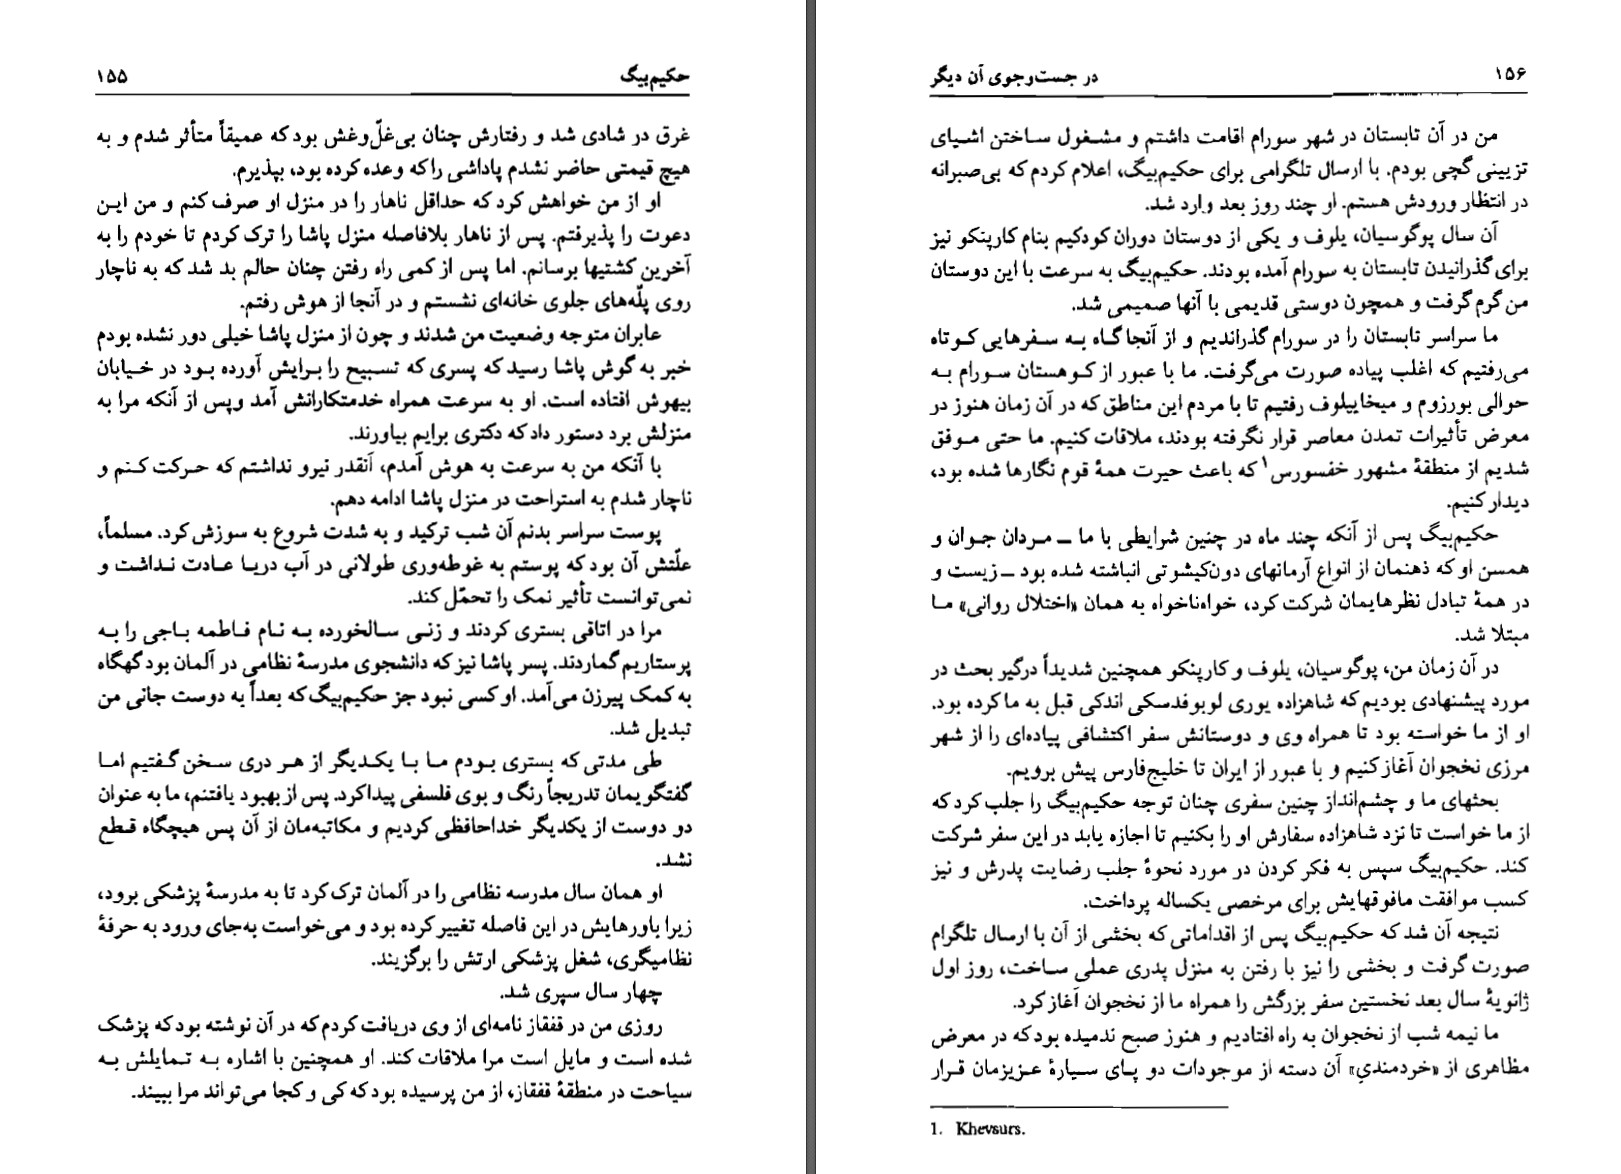 حکیم‌بیگ ۱۵۵
غرق در شادی شد و رفتارش چنان بی‌غلّ‌وغش بود که عمیقاً متأثر شدم و به
هیچ قیمتی حاضر نشدم پاداشی را که وعده کرده بود، بپذیرم.
او از من خواهش کرد که حداقل ناهار را در منزل او صرف کنم و من این
دعوت را پذیرفتم. پس از ناهار بلافاصله منزل پاشا را ترک کردم تا خودم را به
آخرین کشتیها برسانم. اما پس از کمی راه رفتن چنان حالم بد شد که به ناچار
روی پلّه‌های جلوی خانه‌ای نشستم و در آنجا از هوش رفتم.
عابران متوجه وضعیت من شدند و چون از منزل پاشا خیلی دور نشده بودم
خبر به گوش پاشا رسید که پسری که تسبیح را برایش آورده بود در خیابان
بیهوش افتاده است. او به سرعت همراه خدمتکارانش آمد وپس از آنکه مرا به
منزلش برد دستور داد که دکتری برایم بیاورند.
با آنکه من به سرعت به هوش آمدم، آنقدر نیرو نداشتم که حرکت کنم و
ناچار شدم به استراحت در منزل پاشا ادامه دهم.
پوست سراسر بدنم آن شب ترکید و به شدت شروع به سوزش کرد. مسلماً،
علّتش آن بود که پوستم به غوطه‌وری طولانی در آب دریا عادت نداشت و
نمی‌توانست تأثیر نمک را تحمّل کند.
مرا در اتاقی بستری کردند و زنی سالخورده به نام فاطمه باجی را به
پرستاریم گماردند. پسر پاشا نیز که دانشجوی مدرسهٔ نظامی در آلمان بود گهگاه
به کمک پیرزن می‌آمد. او کسی نبود جز حکیم‌بیگ که بعداً به دوست جانی من
تبدیل شد.
طی مدتی که بستری بودم ما با یکدیگر از هر دری سخن گفتیم اما
گفتگویمان تدریجاً رنگ و بوی فلسفی پیدا کرد. پس از بهبود یافتنم، ما به عنوان
دو دوست از یکدیگر خداحافظی کردیم و مکاتبه‌مان از آن پس هیچگاه قطع
نشد.
او همان سال مدرسه نظامی را در آلمان ترک کرد تا به مدرسهٔ پزشکی برود،
زیرا باورهایش در این فاصله تغییر کرده بود و می‌خواست به‌جای ورود به حرفهٔ
نظامیگری، شغل پزشکی ارتش را برگزیند.
چهار سال سپری شد.
روزی من در قفقاز نامه‌ای از وی دریافت کردم که در آن نوشته بود که پزشک
شده است و مایل است مرا ملاقات کند. او همچنین با اشاره به تمایلش به
سیاحت در منطقهٔ قفقاز، از من پرسیده بود که کی و کجا می‌تواند مرا ببیند.
۱۵۶ در جست‌وجوی آن دیگر
من در آن تابستان در شهر سورام اقامت داشتم و مشغول ساختن اشیای
تزیینی گچی بودم. با ارسال تلگرامی برای حکیم‌بیگ، اعلام کردم که بی‌صبرانه
در انتظار ورودش هستم. او چند روز بعد وارد شد.
آن سال پوگوسیان، یلوف و یکی از دوستان دوران کودکیم بنام کارپنکو نیز
برای گذرانیدن تابستان به سورام آمده بودند. حکیم‌بیگ به سرعت با این دوستان
من گرم گرفت و همچون دوستی قدیمی با آنها صمیمی شد.
ما سراسر تابستان را در سورام گذراندیم و از آنجا گاه به سفرهایی کوتاه
می‌رفتیم که اغلب پیاده صورت می‌گرفت. ما با عبور از کوهستان سورام به
حوالی بورزوم و میخاییلوف رفتیم تا با مردم این مناطق که در آن زمان هنوز در
معرض تأثیرات تمدن معاصر قرار نگرفته بودند، ملاقات کنیم. ما حتی موفق
شدیم از منطقهٔ مشهور خفسورس۱ که باعث حیرت همهٔ قوم نگارها شده بود،
دیدار کنیم.
حکیم‌بیگ پس از آنکه چند ماه در چنین شرایطی با ما ــ مردان جوان و
همسن او که ذهنمان از انواع آرمانهای دون‌کیشوتی انباشته شده بود ــ زیست و
در همهٔ تبادل نظرهایمان شرکت کرد، خواه‌ناخواه به همان «اختلال روانی» ما
مبتلا شد.
در آن زمان من، پوگوسیان، یلوف و کارپنکو همچنین شدیداً درگیر بحث در
مورد پیشنهادی بودیم که شاهزاده یوری لوبوفدسکی اندکی قبل به ما کرده بود.
او از ما خواسته بود تا همراه وی و دوستانش سفر اکتشافی پیاده‌ای را از شهر
مرزی نخجوان آغاز کنیم و با عبور از ایران تا خلیج‌فارس پیش برویم.
بحثهای ما و چشم‌انداز چنین سفری چنان توجه حکیم‌بیگ را جلب کرد که
از ما خواست تا نزد شاهزاده سفارش او را بکنیم تا اجازه یابد در این سفر شرکت
کند. حکیم‌بیگ سپس به فکر کردن در مورد نحوهٔ جلب رضایت پدرش و نیز
کسب موافقت مافوقهایش برای مرخصی یکساله پرداخت.
نتیجه آن شد که حکیم‌بیگ پس از اقداماتی که بخشی از آن با ارسال تلگرام
صورت گرفت و بخشی را نیز با رفتن به منزل پدری عملی ساخت، روز اول
ژانویهٔ سال بعد نخستین سفر بزرگش را همراه ما از نخجوان آغاز کرد.
ما نیمه شب از نخجوان به راه افتادیم و هنوز صبح ندمیده بود که در معرض
مظاهری از «خردمندیِ» آن دسته از موجودات دو پای سیارهٔ عزیزمان قرار
1. Khevsurs.